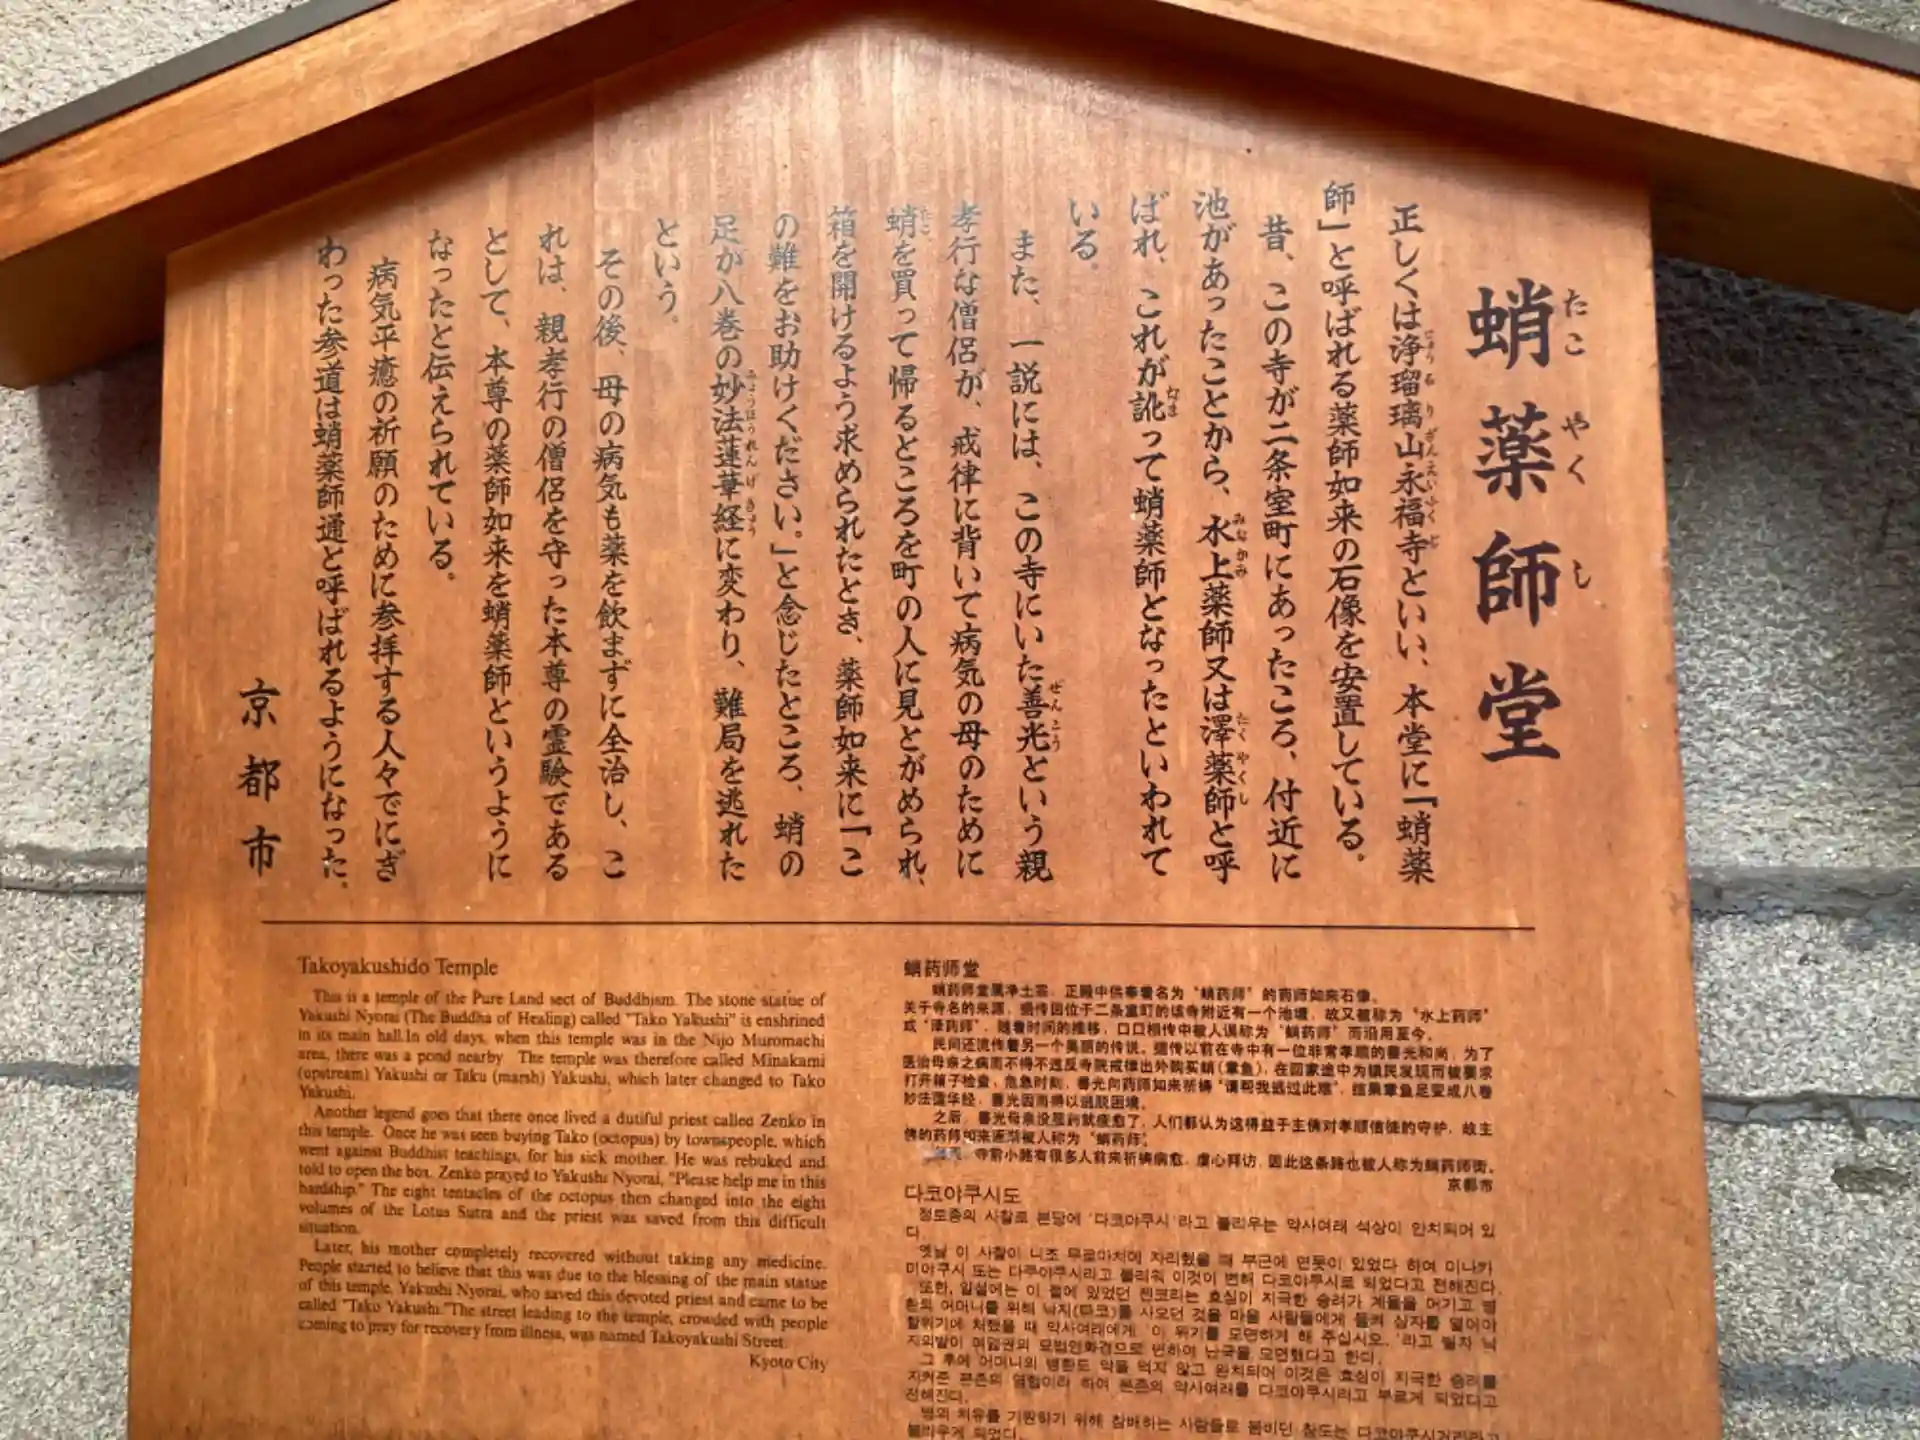 蛸薬師堂
たこやくし
正しくは浄瑠璃山永福寺といい、本堂に「蛸薬
師」と呼ばれる薬師如来の石像を安置している。
昔、この寺が二条室町にあったころ、付近に
池があったことから、水上薬師又は澤薬師と呼
ばれ、これが訛って蛸薬師となったといわれて
いる。
また、一説には、この寺にいた善光という親
孝行な僧侶が、戒律に背いて病気の母のために
蛸を買って帰るところを町の人に見とがめられ、
箱を開けるよう求められたとき、薬師如来に「こ
の難をお助けください。」と念じたところ、蛸の
足が八巻の妙法蓮華経に変わり、難局を逃れた
という。
その後、母の病気も薬を飲まずに全治し、こ
れは、親孝行の僧侶を守った本尊の霊験である
として、本尊の薬師如来を蛸薬師というように
なったと伝えられている。
病気平癒の祈願のために参拝する人々でにぎ
わった参道は蛸薬師通と呼ばれるようになった。
京都市
Takoyakushido Temple
This is a temple of the Pure Land sect of Buddhism. The stone statue of
Yakushi Nyorai (The Buddha of Healing) called "Tako Yakushi" is enshrined
in its main hall.In old days, when this temple was in the Nijo Muromachi
area, there was a pond nearby. The temple was therefore called Minakami
(upstream) Yakushi or Taku (marsh) Yakushi, which later changed to Tako
Yakushi.
Another legend goes that there once lived a dutiful priest called Zenko in
this temple. Once he was seen buying Tako (octopus) by townspeople, which
went against Buddhist teachings, for his sick mother. He was rebuked and
told to open the box. Zenko prayed to Yakushi Nyorai, "Please help me in this
hardship." The eight tentacles of the octopus then changed into the eight
volumes of the Lotus Sutra and the priest was saved from this difficult
situation.
Later, his mother completely recovered without taking any medicine.
People started to believe that this was due to the blessing of the main statue
of this temple, Yakushi Nyorai, who saved this devoted priest and came to be
called "Tako Yakushi."The street leading to the temple, crowded with people
coming to pray for recovery from illness, was named Takoyakushi Street.
Kyoto City
蛸药师堂
蛸药师堂属净土宗，正殿中供奉着名为“蛸药师”的药师如来石像。
关于寺名的来源，据传因位于二条室町的该寺附近有一个池塘，故又被称为“水上药师”
或“泽药师”，随着时间的推移，口口相传中被人误称为“蛸药师”而沿用至今。
民间还流传着另一个美丽的传说。据传以前在寺中有一位非常孝顺的善光和尚，为了
医治母亲之病而不得不违反寺院戒律出外购买蛸（章鱼），在回家途中为镇民发现而被要求
打开箱子检查，危急时刻，善光向药师如来祈祷“请帮我逃过此难”，结果章鱼足变成八卷
妙法莲华经，善光因而得以逃脱困境。
之后，善光母亲没服药就痊愈了，人们都认为这得益于主佛对孝顺信徒的守护，故主
佛的药师如来逐渐被人称为“蛸药师”。
寺前小路有很多人前来祈祷病愈，虔心拜访，因此这条路也被人称为蛸药师街。
京都市
다코야쿠시도
정토종의 사찰로 본당에 '다코야쿠시'라고 불리우는 약사여래 석상이 안치되어 있
다.
옛날 이 사찰이 니조 무로마치에 자리했을 때 부근에 연못이 있었다 하여 미나카
미야쿠시 또는 다쿠야쿠시라고 불리워 이것이 변해 다코야쿠시로 되었다고 전해진다.
또한, 일설에는 이 절에 있었던 젠코라는 효심이 지극한 승려가 계율을 어기고 병
환의 어머니를 위해 낙지(다코)를 사오던 것을 마을 사람들에게 들켜 상자를 열어야
할위기에 처했을 때 약사여래에게 '이 위기를 모면하게 해 주십시오.'라고 빌자 낙
지의발이 여덟권의 묘법연화경으로 변하여 난국을 모면했다고 한다.
그 후에 어머니의 병환도 약을 먹지 않고 완치되어 이것은 효심이 지극한 승려를
지켜준 본존의 영험이라 하여 본존의 약사여래를 다코야쿠시라고 부르게 되었다고
전해진다.
병의 치유를 기원하기 위해 참배하는 사람들로 붐비던 참도는 다코야쿠시거리라고
불리우게 되었다.